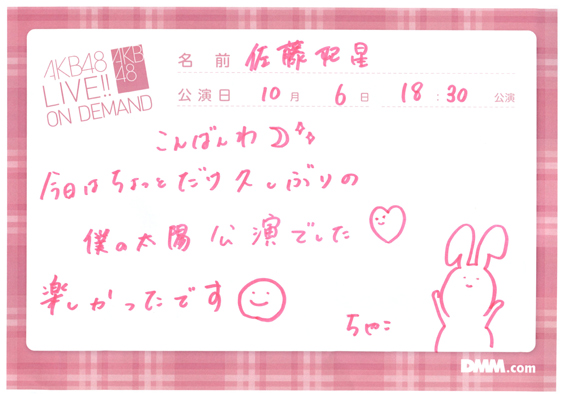 AKB48
LIVE!!
ON DEMAND
AKB
48
名前 佐藤妃星
公演日 10月 6日 18:30 公演
こんばんわ
今日はちょっとだけ久しぶりの
僕の太陽公演でした
楽しかったです
ちゃこ
DMM.com